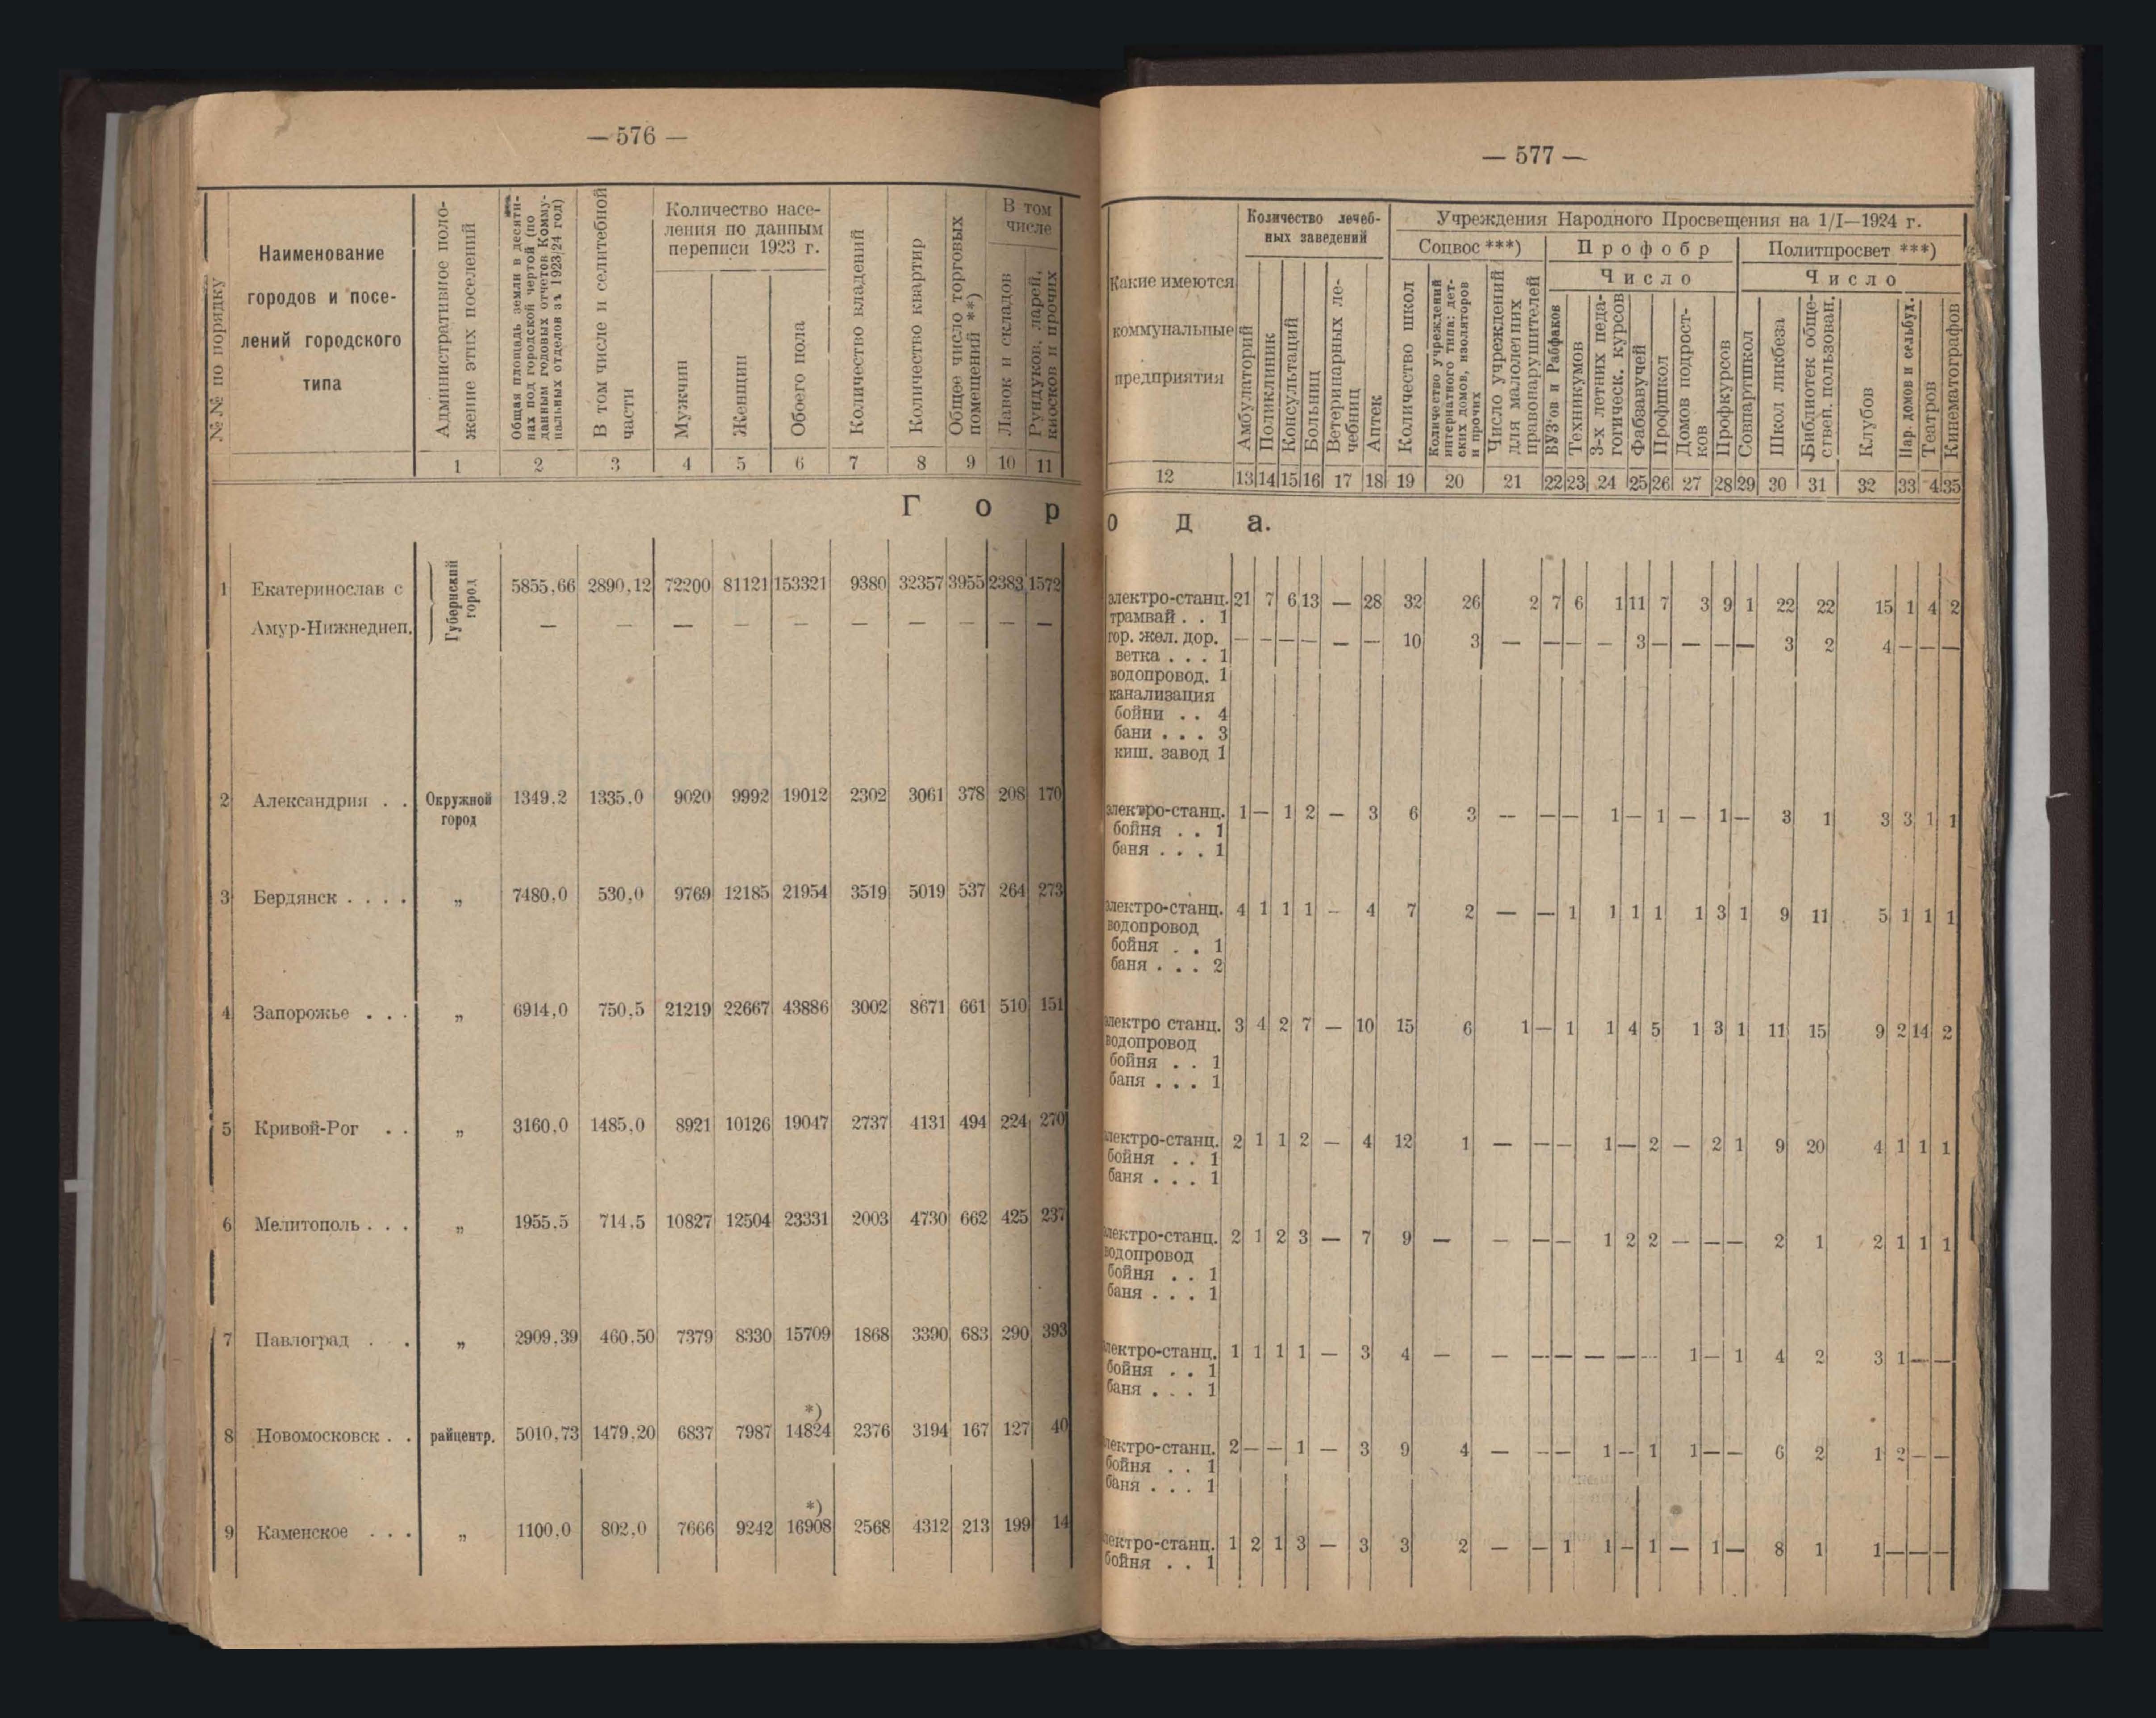 — 576 —
№№ по порядку
Наименование
городов и посе-
лений городского
типа
Административное поло-
жение этих поселений
Общая площадь земли в десяти-
нах под городской чертой (по
данным годовых отчетов Комму-
нальных отделов за 1923/24 год)
В том числе и селитебной
части
Количество насе-
ления по данным
переписи 1923 г.
Мужчин
Женщин
Обоего пола
Количество владений
Количество квартир
Общее число торговых
помещений **)
В том
числе
Лавок и складов
Рундуков, ларей,
киосков и прочих
1 2 3 4 5 6 7 8 9 10 11
Г о р
1 Екатеринослав с Губернский город 5855,66 2890,12 72200 81121 153321 9380 32357 3955 2383 1572
Амур-Нижнеднеп. — — — — — — — — — —
2 Александрия . . Окружной 1349,2 1335,0 9020 9992 19012 2302 3061 378 208 170
город
3 Бердянск . . . . „ 7480,0 530,0 9769 12185 21954 3519 5019 537 264 273
4 Запорожье . . . „ 6914,0 750,5 21219 22667 43886 3002 8671 661 510 151
5 Кривой-Рог . . „ 3160,0 1485,0 8921 10126 19047 2737 4131 494 224 270
6 Мелитополь . . . „ 1955,5 714,5 10827 12504 23331 2003 4730 662 425 237
7 Павлоград . . „ 2909,39 460,50 7379 8330 15709 1868 3390 683 290 393
*)
8 Новомосковск . . райцентр. 5010,73 1479,20 6837 7987 14824 2376 3194 167 127 40
*)
9 Каменское . . . „ 1100,0 802,0 7666 9242 16908 2568 4312 213 199 14
— 577 —
Какие имеются
коммунальные
предприятия
Количество лечеб-
ных заведений
Амбулаторий
Поликлиник
Консультаций
Больниц
Ветеринарных ле-
чебниц
Аптек
Учреждения Народного Просвещения на 1/I—1924 г.
Соцвос ***)
Количество школ
Количество учреждений
интернатного типа: дет-
ских домов, изоляторов
и прочих
Число учреждений
для малолетних
правонарушителей
Профобр
Число
ВУЗ'ов и Рабфаков
Техникумов
3-х летних педа-
гогическ. курсов
Фабзавучей
Профшкол
Домов подрост-
ков
Профкурсов
Политпросвет ***)
Число
Совпартшкол
Школ ликбеза
Библиотек обще-
ствен. пользован.
Клубов
Нар. домов и сельбуд.
Театров
Кинематографов
12 13 14 15 16 17 18 19 20 21 22 23 24 25 26 27 28 29 30 31 32 33 4 35
о д а.
электро-станц. 21 7 6 13 — 28 32 26 2 7 6 1 11 7 3 9 1 22 22 15 1 4 2
трамвай . . 1
гор. жел. дор. — — — — — — 10 3 — — — — 3 — — — — 3 2 4 — — —
ветка . . . 1
водопровод. 1
канализация
бойни . . 4
бани . . . 3
киш. завод 1
электро-станц. 1 — 1 2 — 3 6 3 — — — 1 — 1 — 1 — 3 1 3 3 1 1
бойня . . 1
баня . . . 1
электро-станц. 4 1 1 1 — 4 7 2 — — 1 1 1 1 1 3 1 9 11 5 1 1 1
водопровод
бойня . . 1
баня . . . 2
электро станц. 3 4 2 7 — 10 15 6 1 — 1 1 4 5 1 3 1 11 15 9 2 14 2
водопровод
бойня . . 1
баня . . . 1
электро-станц. 2 1 1 2 — 4 12 1 — — — 1 — 2 — 2 1 9 20 4 1 1 1
бойня . . 1
баня . . . 1
электро-станц. 2 1 2 3 — 7 9 — — — — 1 2 2 — — — 2 1 2 1 1 1
водопровод
бойня . . 1
баня . . . 1
электро-станц. 1 1 1 1 — 3 4 — — — — — — — 1 — 1 4 2 3 1 — —
бойня . . 1
баня . . . 1
электро-станц. 2 — — 1 — 3 9 4 — — — 1 — 1 1 — — 6 2 1 2 — —
бойня . . 1
баня . . . 1
электро-станц. 1 2 1 3 — 3 3 2 — — 1 1 — 1 — 1 — 8 1 1 — — —
бойня . . 1